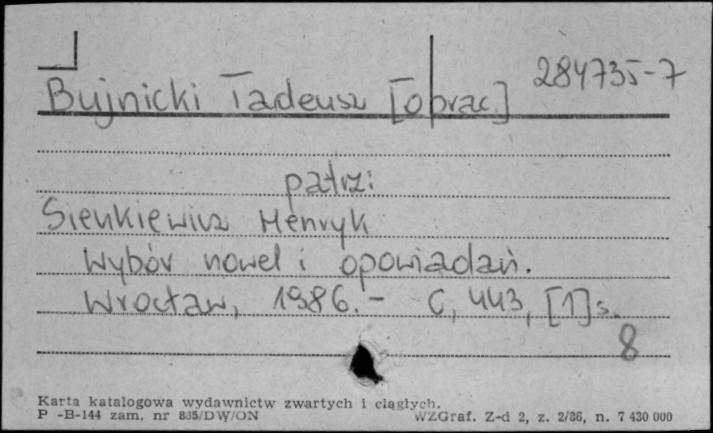 Bujnicki Tadeusz [oprac.] 284735-7
patrz:
Sienkiewicz Henryk
Wybór nowel i opowiadań.
Wrocław, 1986. - C, 443, [1] s.
8
Karta katalogowa wydawnictw zwartych i ciągłych.
P -B-144 zam. nr 835/DW/ON WZGraf. Z-d 2, z. 2/86, n. 7 430 000